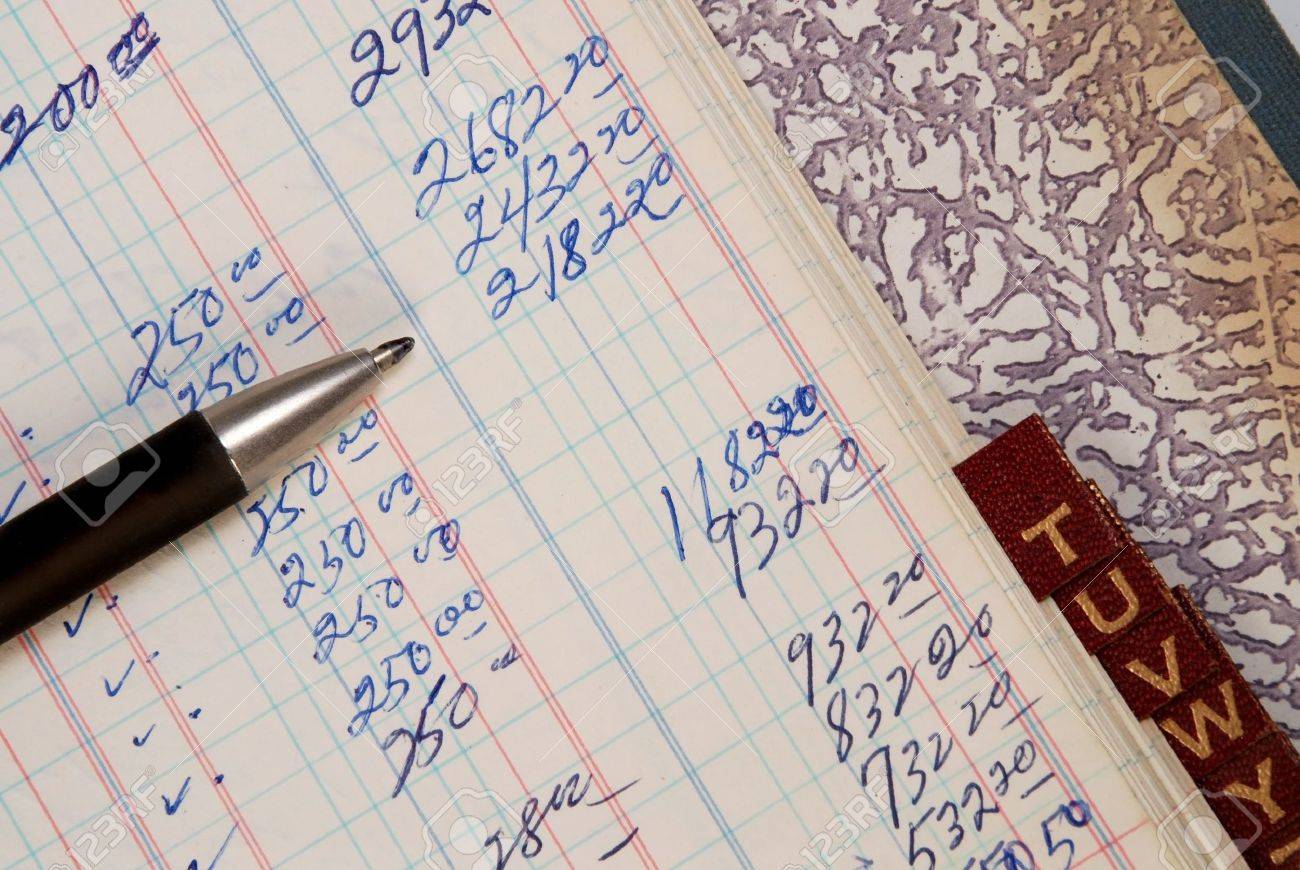 200 00
2932
2682 20
2432 20
2182 20
250 00
250 00
250 00
250 00
250 00
250 00
250
1182 20
932 20
932 20
832 20
732 20
532 20
50
T
U
V
W
Y